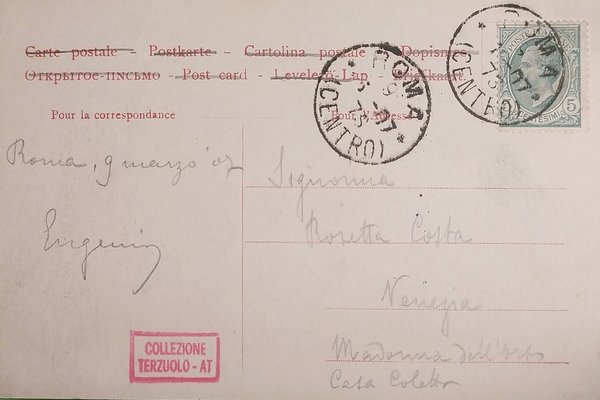 Carte postale - Postkarte - Cartolina postale - Dopisnice
Открытое-письмо - Post card - Levelező-Lap - Briefkaart
Pour la correspondance
Pour l'Adresse
ROMA
(CENTRO)
ROMA
(CENTRO)
POSTE ITALIANE
5
CENTESIMI
Roma, 9 marzo 07
Eugenio
Signorina
Rosetta Costa
Venezia
Madonna dell'Orto
Casa Coletti
COLLEZIONE
TERZUOLO - AT